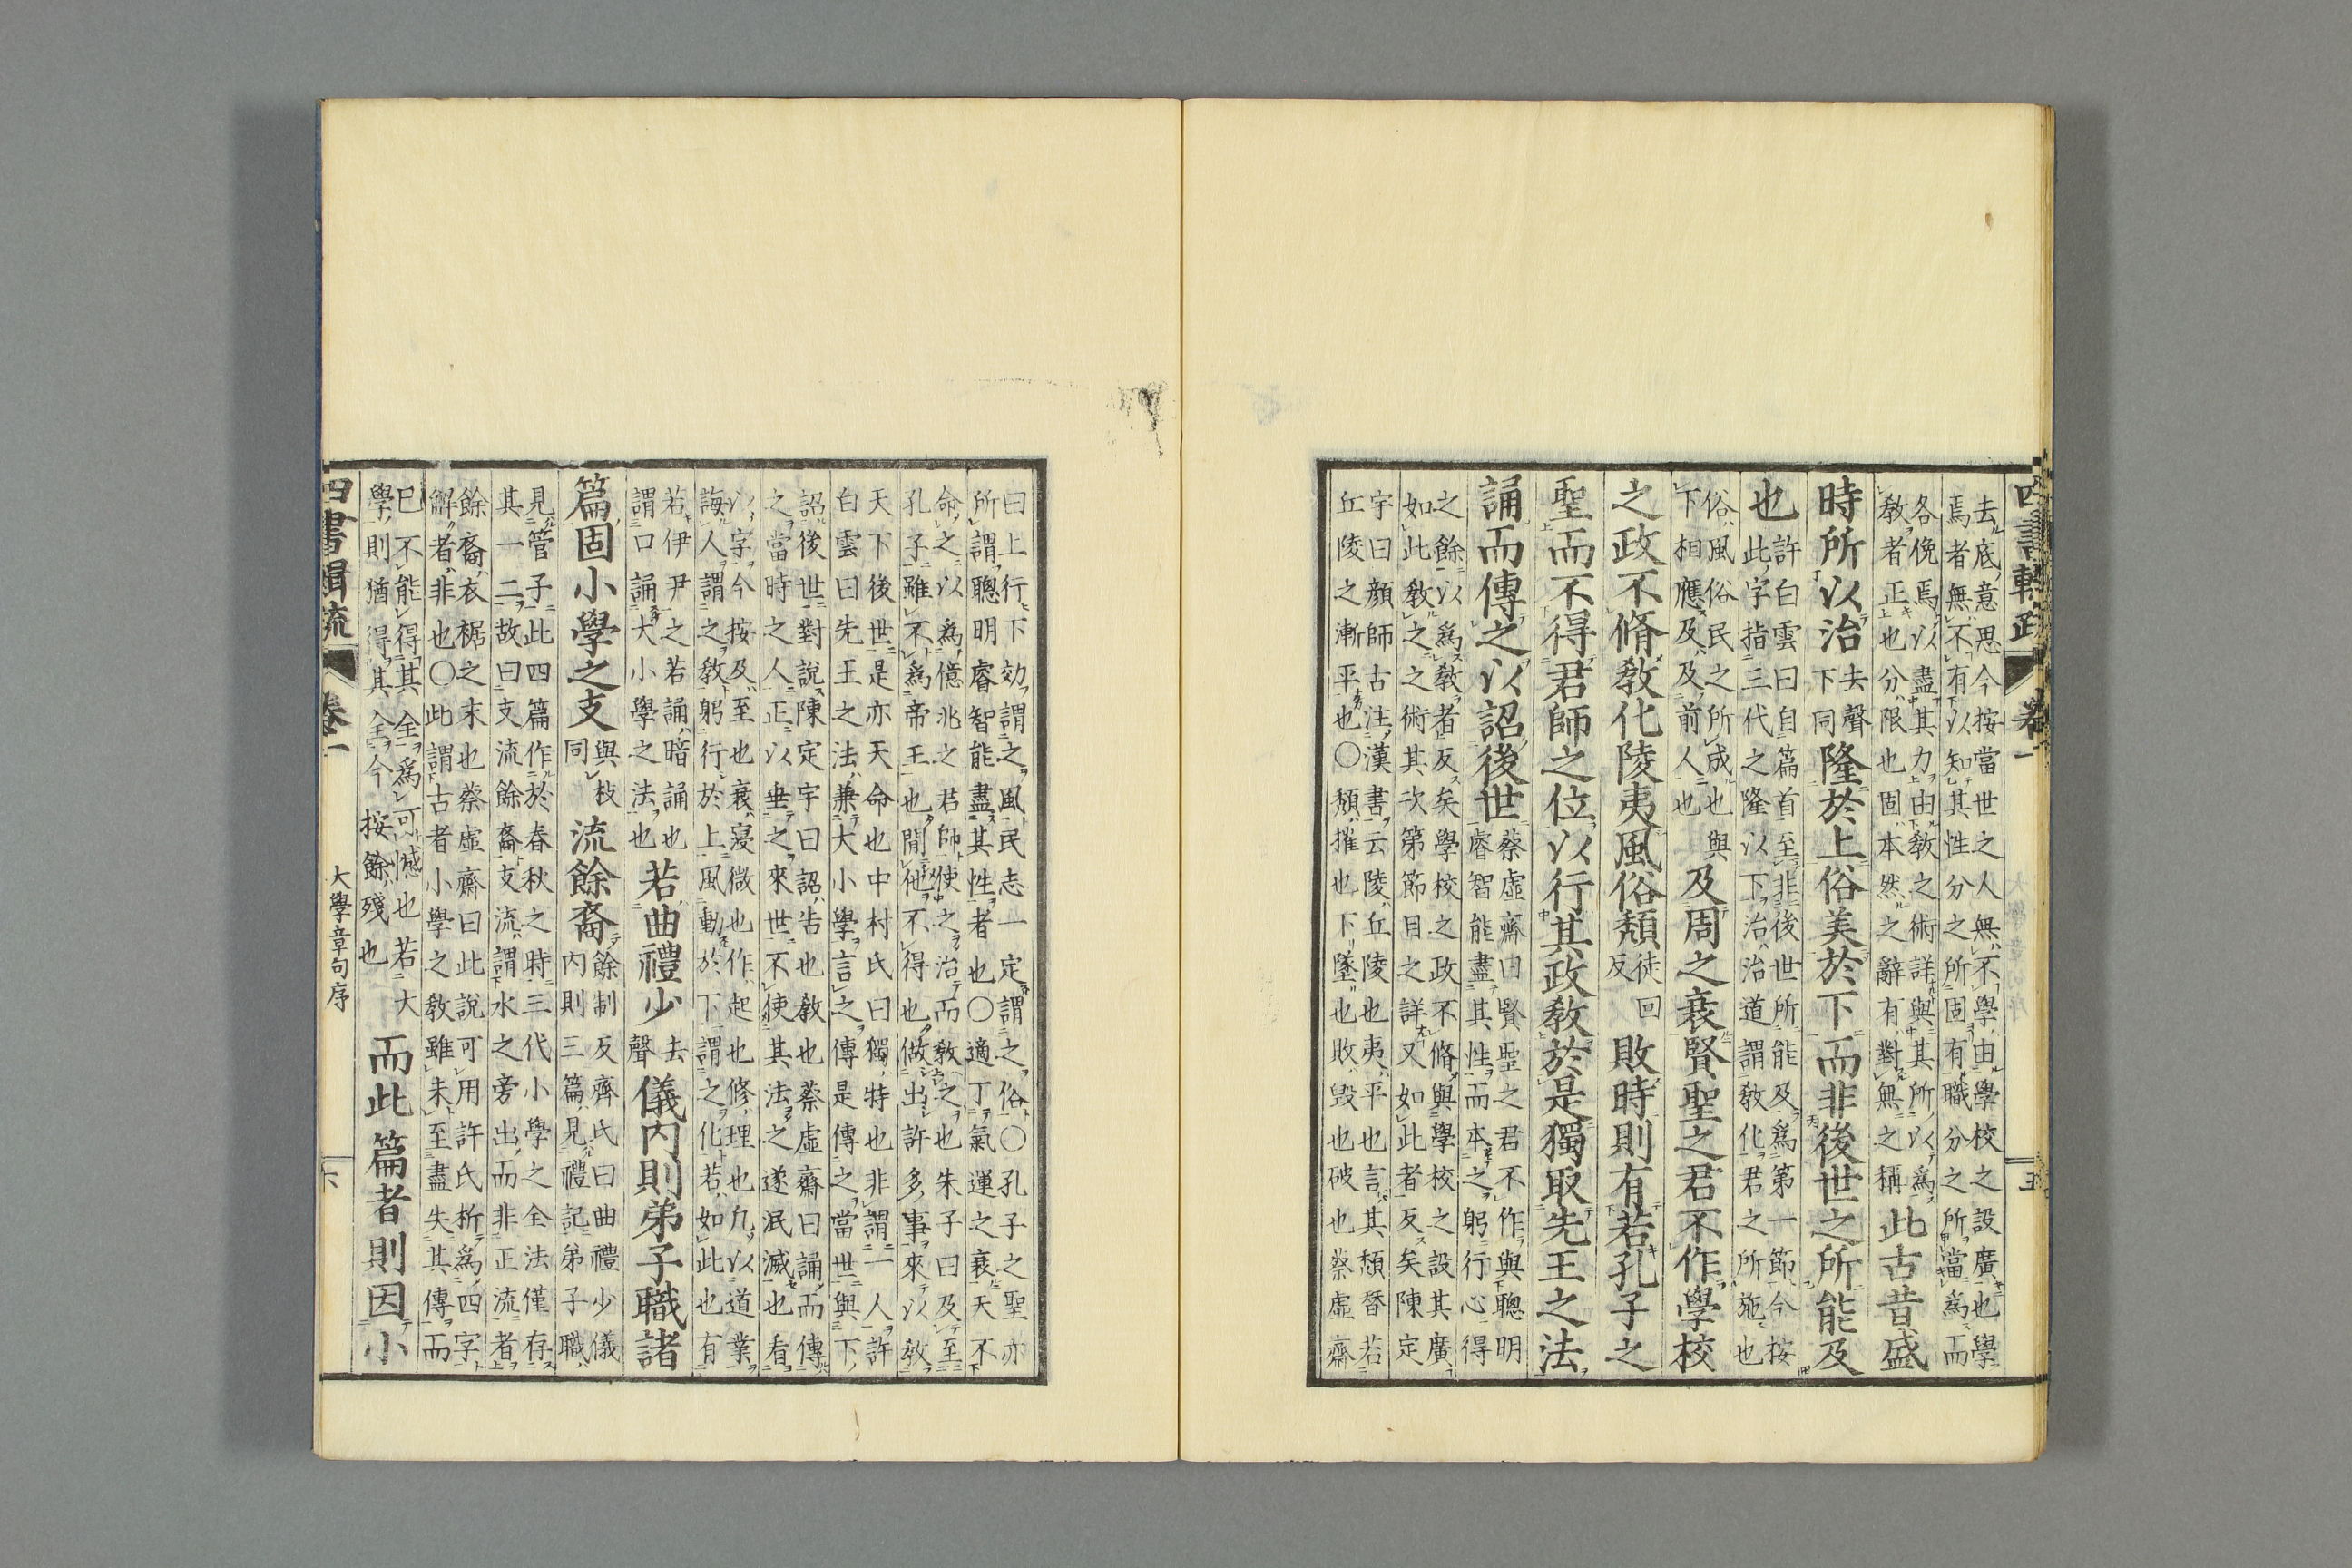 四書輯疏 卷一
去底意思今按當世之人無不學由學校之設廣也學
焉者無不有以知其性分之所固有職分之所當爲而
各俛焉以盡其力由敎之術詳與其所以爲
敎者正也分限也固本然之辭有對無之稱
此古昔盛
時所以治
去聲
下同
隆於上俗美於下而非後世之所能及
也
許白雲曰自篇首至非後世所能及爲第一節今按
此字指三代之隆以下治治道謂敎化君之所施也
俗風俗民之所成也與
下相應及及前人也
及周之衰賢聖之君不作學校
之政不脩敎化陵夷風俗頹
徒回
反
敗時則有若孔子之
聖而不得君師之位以行其政敎於是獨取先王之法
誦而傳之以詔後世
蔡虛齋曰賢聖之君不作與聰明
睿智能盡其性而本之躬行心得
之餘以爲敎者反矣學校之政不脩與學校之設其廣
如此敎之之術其次第節目之詳又如此者反矣陳定
宇曰顏師古注漢書云陵丘陵也夷平也言其頹替若
丘陵之漸平也〇頹摧也下墜也敗毀也破也蔡虛齋
曰上行下効謂之風民志一定謂之俗〇孔子之聖亦
所謂聰明睿智能盡其性者也〇適丁氣運之衰天不
命之以爲億兆之君師使之治而敎之也朱子曰及至
孔子雖不爲帝王也閒他不得也做出許多事來以敎
天下後世是亦天命也中村氏曰獨特也非謂一人許
白雲曰先王之法兼大小學言之傳是傳之當世與下
詔後世對說陳定宇曰詔告也敎也蔡虛齋曰誦而傳
之當時之人正以垂之來世不使其法之遂泯滅也看
以字今按及至也衰寖微也作起也修理也凡以道業
誨人謂之敎躬行於上風動於下謂之化若如此也有
若伊尹之若誦暗誦也
謂口誦大小學之法也
若曲禮少
去
聲
儀内則弟子職諸
篇固小學之支
與枝
同
流餘裔
餘制反齊氏曰曲禮少儀
內則三篇見禮記弟子職
見管子此四篇作於春秋之時三代小學之全法僅存
其一二故曰支流餘裔支流謂水之旁出而非正流者
餘裔衣裾之末也蔡虛齋曰此說可用許氏析爲四字
解者非也〇此謂古者小學之敎雖未至盡失其傳而
已不能得其全爲可憾也若大
學則猶得其全今按餘殘也
而此篇者則因小
四書輯疏 卷一 大學章句序